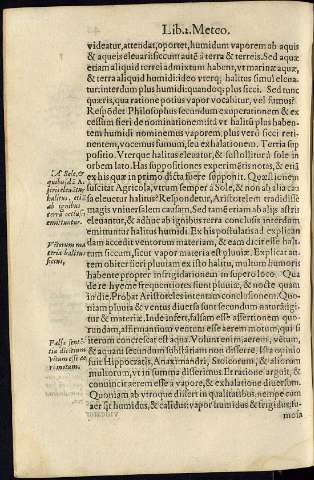 Lib.1. Meteo.
videatur, attendat, oportet, humidum vaporem ab aquis
& aqueis eleuari: siccum autē à terra & terreis. Sed aquæ
etiam aliquid terrei admixtum habent, vt marinæ aquæ,
& terra aliquid humidi: ideo vterq; halitus simul eleua-
tur: interdum plus humidi: quandoq; plus sicci. Sed tunc
quæris, qua ratione potius vapor vocabitur, vel fumus?
Respōdet Philosophus secundum exuperationem & ex
cessum fieri denominationem: ita vt halitū plus haben-
tem humidi nominemus vaporem, plus verò sicci reti-
nentem, vocemus fumum, seu exhalationem. Tertia sup
positio. Vterque halitus eleuatur, & sustollitur à sole in
orbem lato. Hæ suppositiones experimētis notæ, & etiā
ex his quæ in primo dicta fuere supponit. Quæstionem
suscitat Agricola, vtrum semper à Sole, & non ab alia cau
sa eleuetur halitus? Respondetur, Aristotelem tradidisse
magis vniuersalem causam. Sed tamē etiam ab alijs astris
eleuantur, & adhuc ab ignibus terra conclusis interdum
emittuntur halitus humidi. Ex his postulatis ad explican
dam accedit ventorum materiam, & eam dicit esse hali-
tum siccum, sicut vapor materia est pluuiæ. Explicat au-
tem obiter fieri pluuiam ex isto halitu, multum humoris
habente propter infrigidationem in supero loco. Qua
de re hyeme frequentiores sunt pluuiæ, & nocte quam
in die. Probat Aristoteles intentam conclusionem. Quo-
niam pluuia & ventus diuersa sunt secundum naturā: igi-
tur & materiæ. Inde infert, falsam esse assertionem quo-
rundam, affirmantium ventum esse aerem motum, qui si
iterum concrescat est aqua. Volunt enim aerem, vētum,
& aquam secundum substātiam non differre. Ista opinio
fuit Hippocratis, Anaximandri, Stoicorum, & aliorum
multorum, vt in summa disserimus. Et ratione arguit, &
conuincit aerem esse à vapore, & exhalatione diuersum.
Quoniam ab vtroque differt in qualitatibus. nempe cum
aer q̄t humidus, & calidus: vapor humidus & frigidus, fu-
mosa
A Sole, &
eleuātur
halitus, etiā
ab ignibus
terra
emittuntur.
Vētorum ma
teria halitus
siccus.
Falsa
dicitum